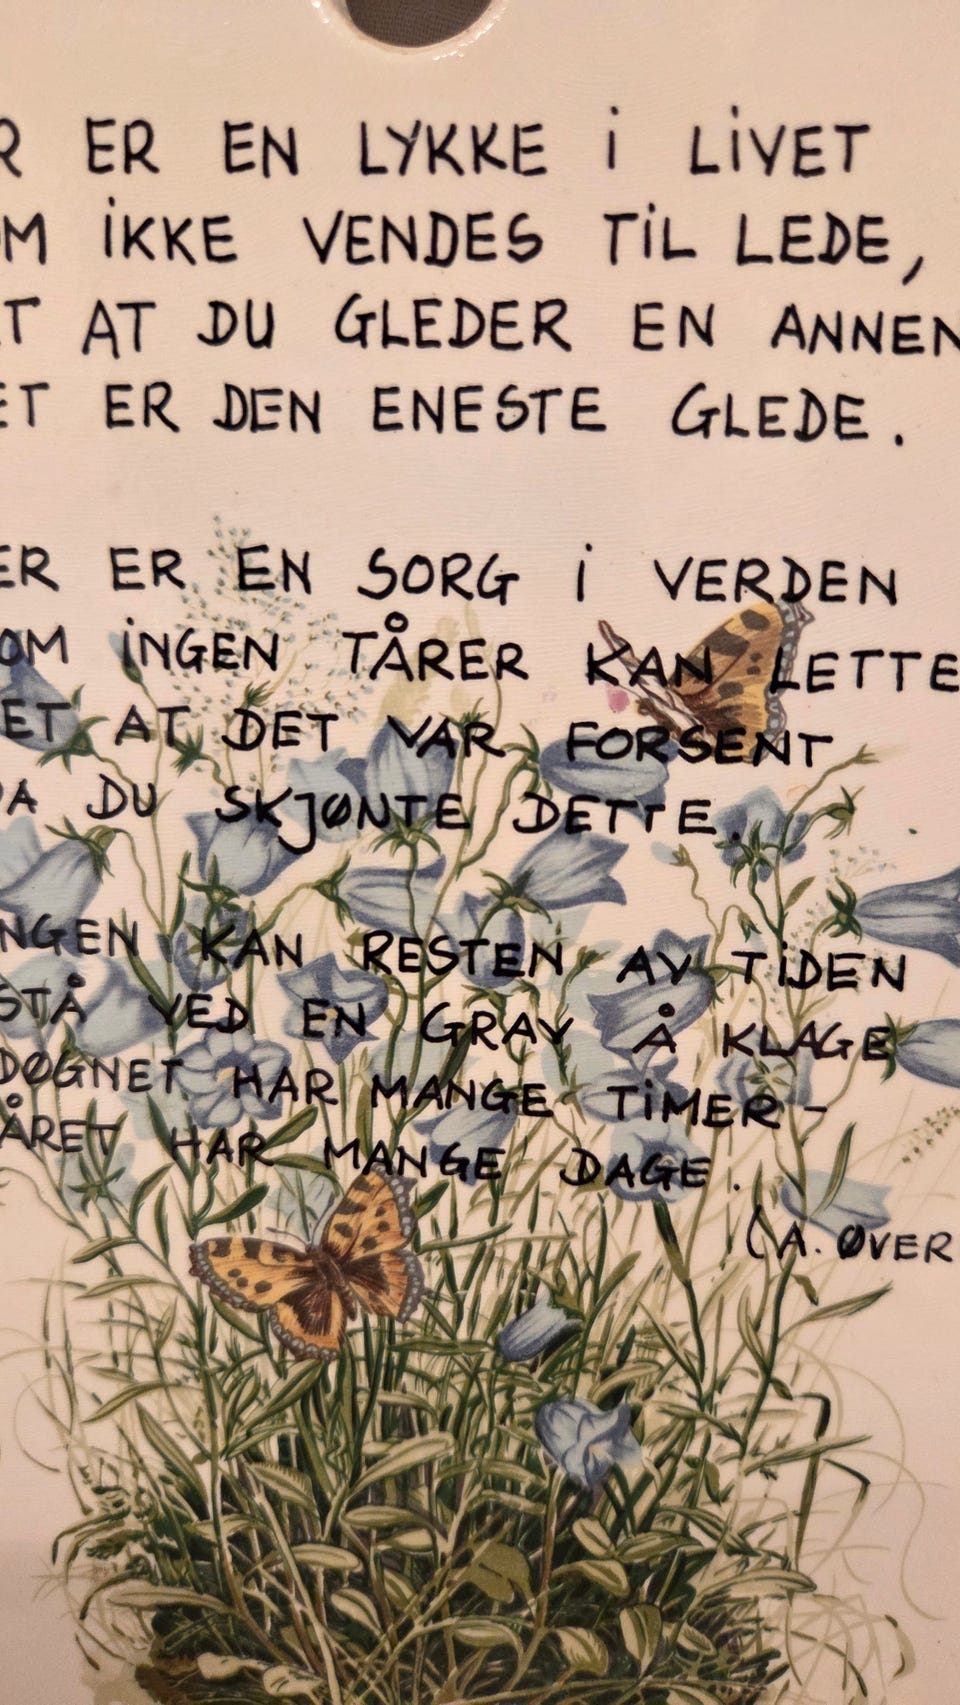 R ER EN LYKKE i LiVET
OM iKKE VENDES TiL LEDE,
ET AT DU GLEDER EN ANNEN
ET ER DEN ENESTE GLEDE.
ER ER EN SORG i VERDEN
OM iNGEN TÅRER KAN LETTE
ET AT DET VAR FORSENT
DA DU SKJØNTE DETTE.
NGEN KAN RESTEN AV TiDEN
STÅ VED EN GRAV Å KLAGE
DØGNET HAR MANGE TiMER -
ÅRET HAR MANGE DAGE.
(A. ØVER